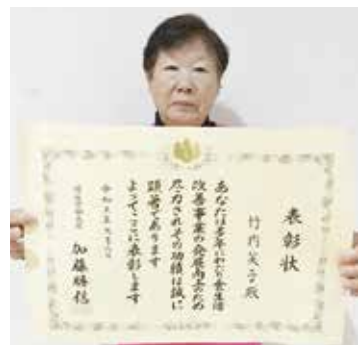 表彰状
竹内笑子殿
あなたは多年にわたり食生活
改善事業の発展向上のため
尽力されその功績は誠に
顕著であります
よってここに表彰します
令和五年
厚生労働大臣
加藤勝信